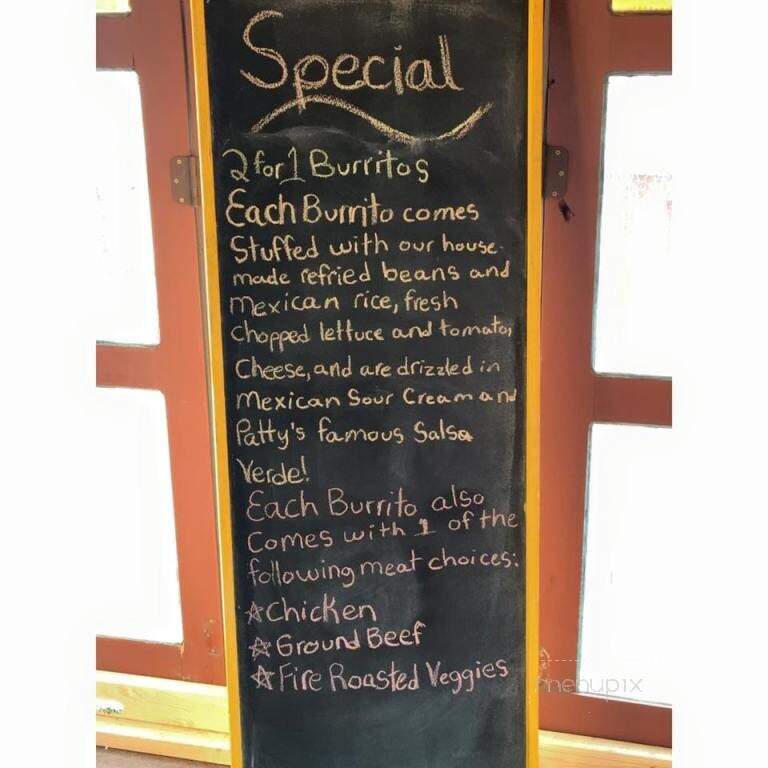 Special
2 for 1 Burritos
Each Burrito comes
Stuffed with our house-
made refried beans and
Mexican rice, fresh
Chopped lettuce and tomato,
Cheese, and are drizzled in
Mexican Sour Cream and
Patty's famous Salsa
Verde!
Each Burrito also
Comes with 1 of the
following meat choices:
☆Chicken
☆Ground Beef
☆Fire Roasted Veggies
menupix